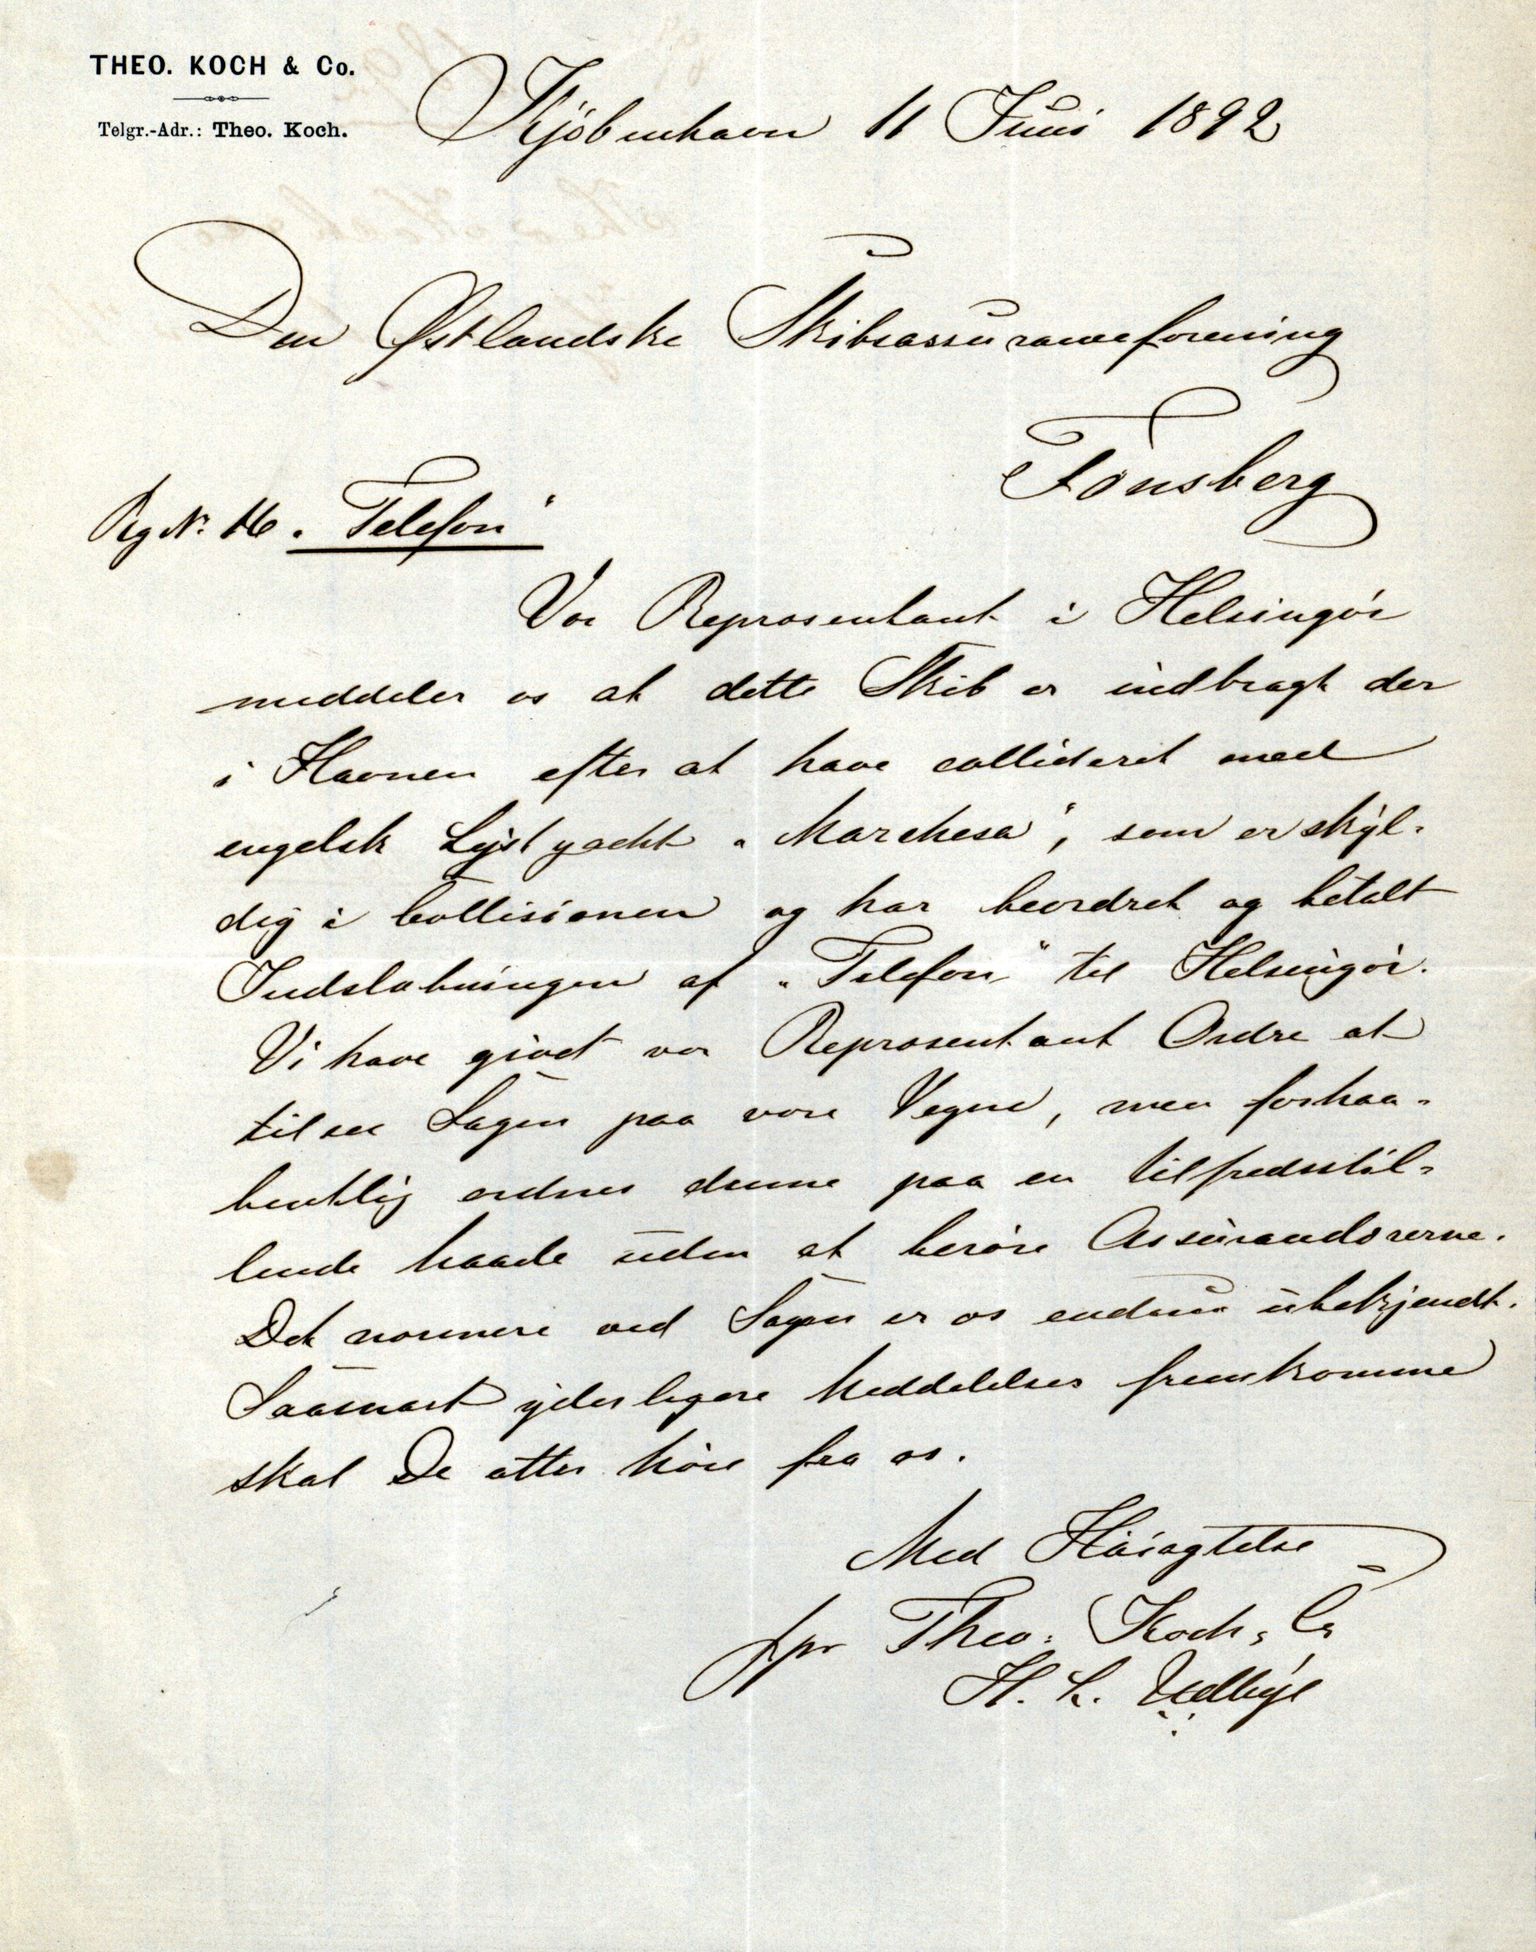 THEO. KOCH & Co.
Telgr.-Adr.: Theo. Koch.
Kjöbenhavn 11 Juni 1892
Den Østlandske Skibsassuranceforening
Tönsberg
Reg No. 16 „Telefon“
Vor Repræsentant i Helsingör
meddeler os at dette Skib er indbragt der
i Havnen efter at have collideret med
engelsk Lystyacht „Marchesa“, som er skyl-
dig i Collisionen og har beordret og betalt
Indslæbningen af „Telefon“ til Helsingör.
Vi have givet vor Repræsentant Ordre at
tilsee Sagen paa vore Vegne, men forhaa-
bentlig ordnes denne paa en tilfredsstil-
lende Maade uden at beröre Assurandörerne.
Det nærmere ved Sagen er os endnu ubekjendt.
Saasnart yderligere Meddelelser fremkomme
skal De atter höre fra os.
Med Höiagtelse
ppr Theo. Koch & Co
H. L.